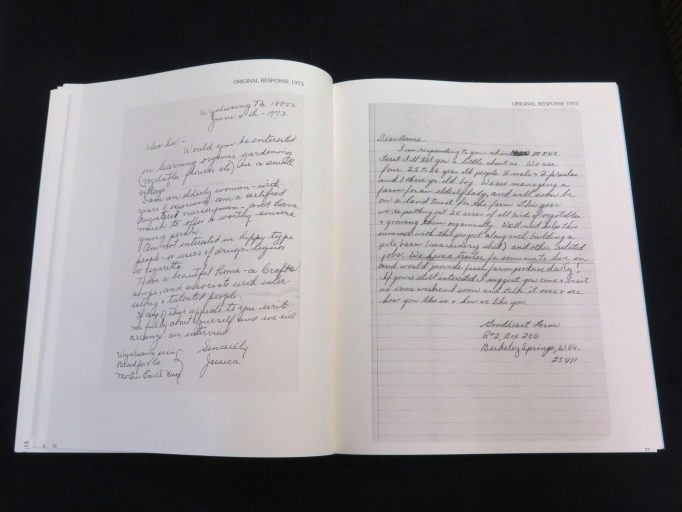 ORIGINAL RESPONSE 1973
Wyalusing Pa. 18853
June 4th - 1973
Dear Sir: -
Would you be interested
in learning organic gardening
(vegetables flowers etc) in a small
village?
I am an elderly woman - with
years of experience, am a certified
registered nurserywoman - and have
much to offer a worthy sincere
young person.
I am not interested in hippy type
people - or users of drugs - liquor
or cigaretts.
Have a beautiful home - a Crafts
shop, and associate with enter-
esting & talented people.
If any of this appeals to you write
me fully about yourself and we will
arrange an interview
Sincerely
Jessica
Wyalusing
Bradford Co
Mother Earth News
ORIGINAL RESPONSE 1973
Dear Bruce
I am responding to your ad in M.E.N.
First I'll tell you a little about us. We are
four 25 & 26 year old people 2 males & 2 females
and 1 three yr. old boy. We are managing a
farm for an elderly lady, and will soon be
on a land trust for the farm. This year
we're putting out 20 acres of all kinds of vegetables
& growing them organically. We'll what help this
summer with this project along with building a
pole barn (machinery shed) and other related
jobs. We have a trailer for someone to live in
and would provide fresh farm produce daily!
If you're still interested I suggest you come & visit
us some weekend soon and talk it over & see
how you like us & how we like you.
Sondheart Farm
Rt 2, Box 206
Berkeley Springs, W. Va.
25411